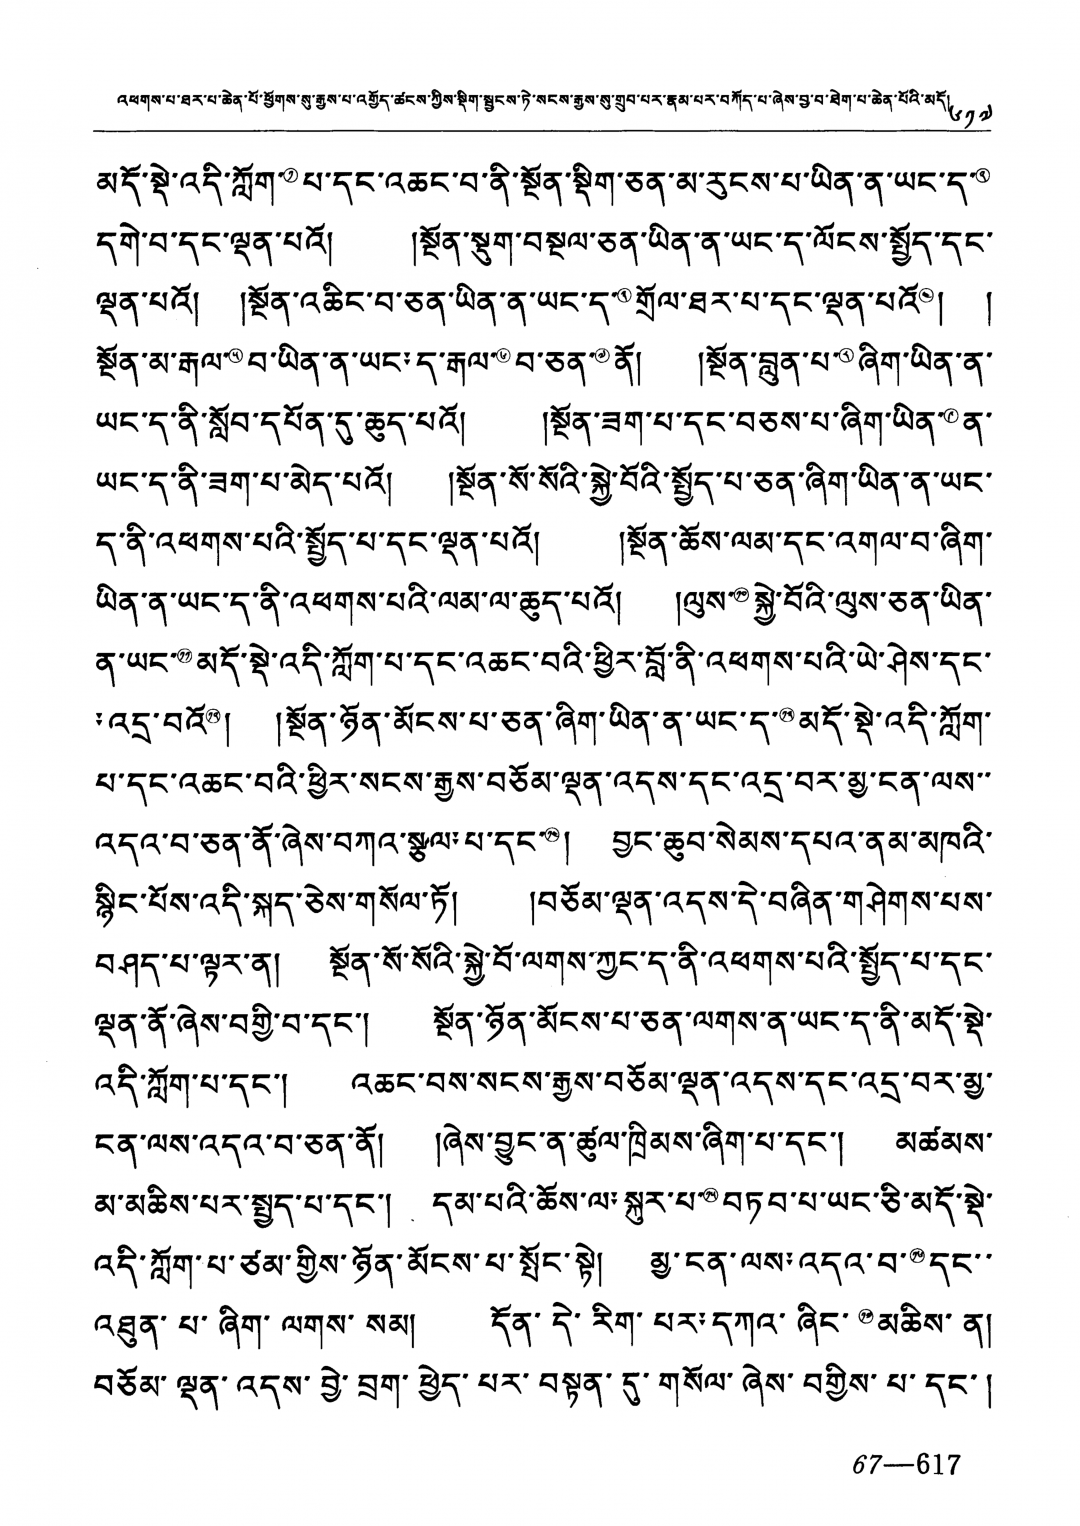 འཕགས་པ་ཐར་པ་ཆེན་པོ་ཕྱོགས་སུ་རྒྱས་པ་འགྱོད་ཚངས་ཀྱིས་སྡིག་སྦྱངས་ཏེ་སངས་རྒྱས་སུ་གྲུབ་པར་རྣམ་པར་བཀོད་པ་ཞེས་བྱ་བ་ཐེག་པ་ཆེན་པོའི་མདོ། ༦༡༧
མདོ་སྡེ་འདི་ཀློག་① པ་དང་འཆང་བ་ནི་སྔོན་སྡིག་ཅན་མ་རུངས་པ་ཡིན་ན་ཡང་ད་②
དགེ་བ་དང་ལྡན་པའོ། །སྔོན་སྡུག་བསྔལ་ཅན་ཡིན་ན་ཡང་ད་ལོངས་སྤྱོད་དང་
ལྡན་པའོ། །སྔོན་འཆིང་བ་ཅན་ཡིན་ན་ཡང་ད་③གྲོལ་ཐར་པ་དང་ལྡན་པའོ④། །
སྔོན་མ་རྒལ་⑤བ་ཡིན་ན་ཡང་༔ད་རྒལ་⑥བ་ཅན་⑦ནོ། །སྔོན་བླུན་པ་⑧ཞིག་ཡིན་ན་
ཡང་ད་ནི་སློབ་དཔོན་དུ་ཆུད་པའོ། །སྔོན་ཟག་པ་དང་བཅས་པ་ཞིག་ཡིན་⑨ན་
ཡང་ད་ནི་ཟག་པ་མེད་པའོ། །སྔོན་སོ་སོའི་སྐྱེ་བོའི་སྤྱོད་པ་ཅན་ཞིག་ཡིན་ན་ཡང་
ད་ནི་འཕགས་པའི་སྤྱོད་པ་དང་ལྡན་པའོ། །སྔོན་ཆོས་ལམ་དང་འགལ་བ་ཞིག་
ཡིན་ན་ཡང་ད་ནི་འཕགས་པའི་ལམ་ལ་ཆུད་པའོ། །ལུས་⑩སྐྱེ་བོའི་ལུས་ཅན་ཡིན་
ན་ཡང་⑪མདོ་སྡེ་འདི་ཀློག་པ་དང་འཆང་བའི་ཕྱིར་བློ་ནི་འཕགས་པའི་ཡེ་ཤེས་དང་
༔འདྲ་བའོ⑫། །སྔོན་ཉོན་མོངས་པ་ཅན་ཞིག་ཡིན་ན་ཡང་ད་⑬མདོ་སྡེ་འདི་ཀློག་
པ་དང་འཆང་བའི་ཕྱིར་སངས་རྒྱས་བཅོམ་ལྡན་འདས་དང་འདྲ་བར་མྱ་ངན་ལས་་
འདའ་བ་ཅན་ནོ་ཞེས་བཀའ་སྩལ༔པ་དང་⑭། བྱང་ཆུབ་སེམས་དཔའ་ནམ་མཁའི་
སྙིང་པོས་འདི་སྐད་ཅེས་གསོལ་ཏོ། །བཅོམ་ལྡན་འདས་དེ་བཞིན་གཤེགས་པས་
བཤད་པ་ལྟར་ན། སྔོན་སོ་སོའི་སྐྱེ་བོ་ལགས་ཀྱང་ད་ནི་འཕགས་པའི་སྤྱོད་པ་དང་
ལྡན་ནོ་ཞེས་བགྱི་བ་དང་། སྔོན་ཉོན་མོངས་པ་ཅན་ལགས་ན་ཡང་ད་ནི་མདོ་སྡེ་
འདི་ཀློག་པ་དང་། འཆང་བས་སངས་རྒྱས་བཅོམ་ལྡན་འདས་དང་འདྲ་བར་མྱ་
ངན་ལས་འདའ་བ་ཅན་ནོ། །ཞེས་བྱུང་ན་ཚུལ་ཁྲིམས་ཞིག་པ་དང་། མཚམས་
མ་མཆིས་པར་སྤྱད་པ་དང་། དམ་པའི་ཆོས་ལ༔སྐུར་པ་⑮བཏབ་པ་ཡང་ཅི་མདོ་སྡེ་
འདི་ཀློག་པ་ཙམ་གྱིས་ཉོན་མོངས་པ་སྤོང་སྟེ། མྱ་ངན་ལས༔འདའ་བ་⑯དང་་
འཐུན་པ་ཞིག་ལགས་སམ། དོན་དེ་རིག་པར༔དཀའ་ཞིང་⑰མཆིས་ན།
བཅོམ་ལྡན་འདས་བྱེ་བྲག་ཕྱེད་པར་བསྟན་དུ་གསོལ་ཞེས་བགྱིས་པ་དང་།
67—617